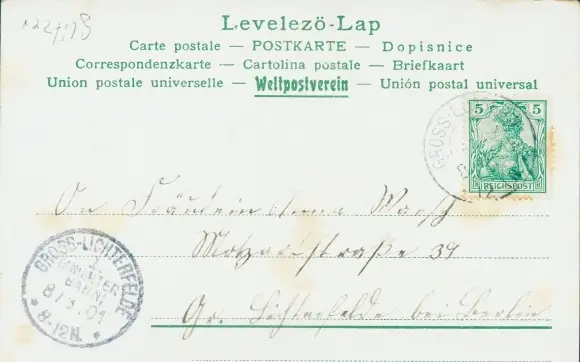 Levelezö-Lap
Carte postale — POSTKARTE — Dopisnice
Correspondenzkarte — Cartolina postale — Briefkaart
Union postale universelle — Weltpostverein — Unión postal universal
5 5
REICHSPOST
GROSS-
An Fräulein Anna
Mozartstraße 39
Gr. Lichterfelde bei Berlin
GROSS-LICHTERFELDE
BAHN
8/3.01
8-12N.